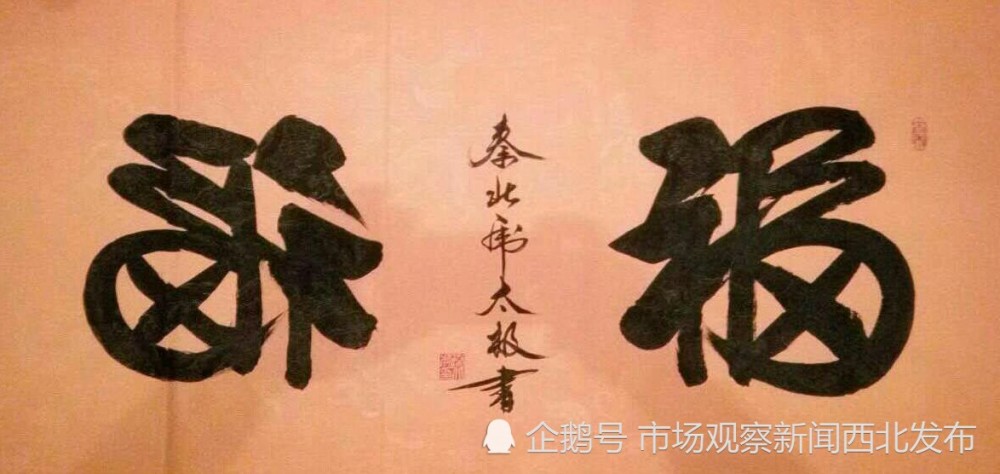 福
秦北虎太极書
福
企鹅号 市场观察新闻西北发布